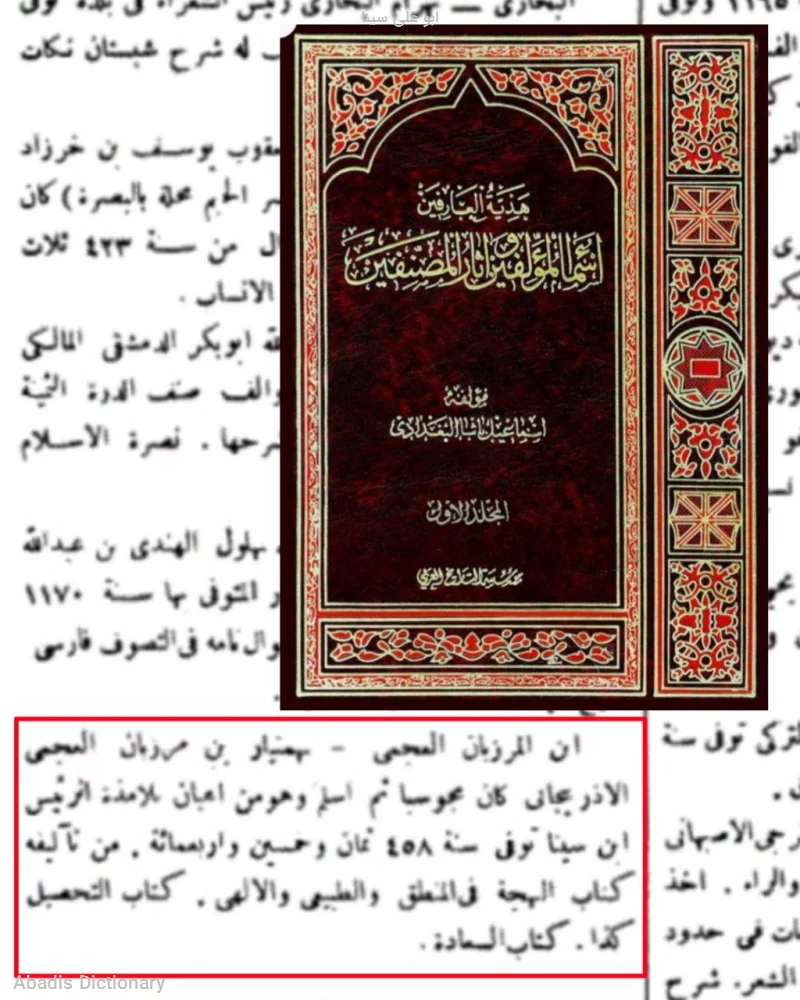 ابو علی سینا
البخاری — بهرام البخاری رئیس الشعراء فی بلده توفی
له شرح شبستان نكات
يعقوب يوسف بن خرزاد
الجيم محلة بالبصرة) كان
من سنة ٤٢٣ ثلاث
الانساب .
ابوبكر الدمشقی المالكی
والف صنف الدرة الثمينة
شرحها . نصرة الاسلام
بهلول الهندی بن عبدالله
المتوفی بها سنة ١١٧٠
فی التصوف فارسی
هدية العارفين
اسماء المؤلفين وآثار المصنفين
مؤلفه
اسماعيل باشا البغدادی
المجلد الاول
مؤسسة التاريخ العربي
ابن المرزبان العجمی – بهمنيار بن مرزبان العجمی
الاذربیجانی كان مجوسيا ثم اسلم وهو من اعيان تلامذة الرئیس
ابن سينا توفی سنة ٤٥٨ ثمان وخمسين واربعمائة . من تآليفه
كتاب البهجة فی المنطق والطبيعی والالهی . كتاب التحصيل
كذا . كتاب السعادة .
التركی توفی سنة
الاصبهانی
والراء . اخذ
فی حدود
الشعر . شرح
Abadis Dictionary